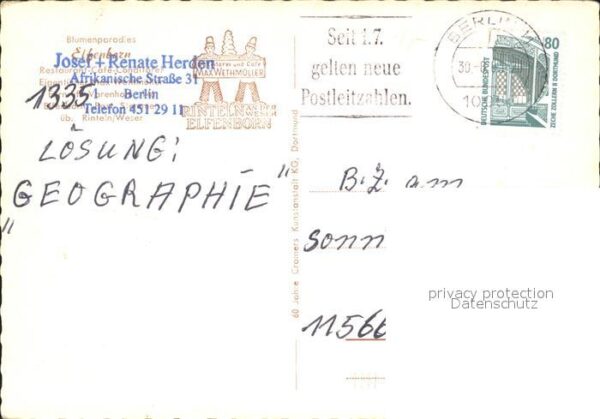 Blumenparadies
Elfenborn
Josef + Renate Herden
Afrikanische Straße 31
1335 1 Berlin
Telefon 451 29 11
üb. Rinteln/Weser
MAX WETHMÜLLER
RINTELN AN DER WESER
ELFENBORN
LÖSUNG:
"GEOGRAPHIE"
60 Jahre Cramers Kunstanstalt KG, Dortmund
Seit 1.7.
gelten neue
Postleitzahlen.
BERLIN
80
DEUTSCHE BUNDESPOST
ZECHE ZOLLERN II DORTMUND
B.Z. am
Sonn
11566
privacy protection
Datenschutz